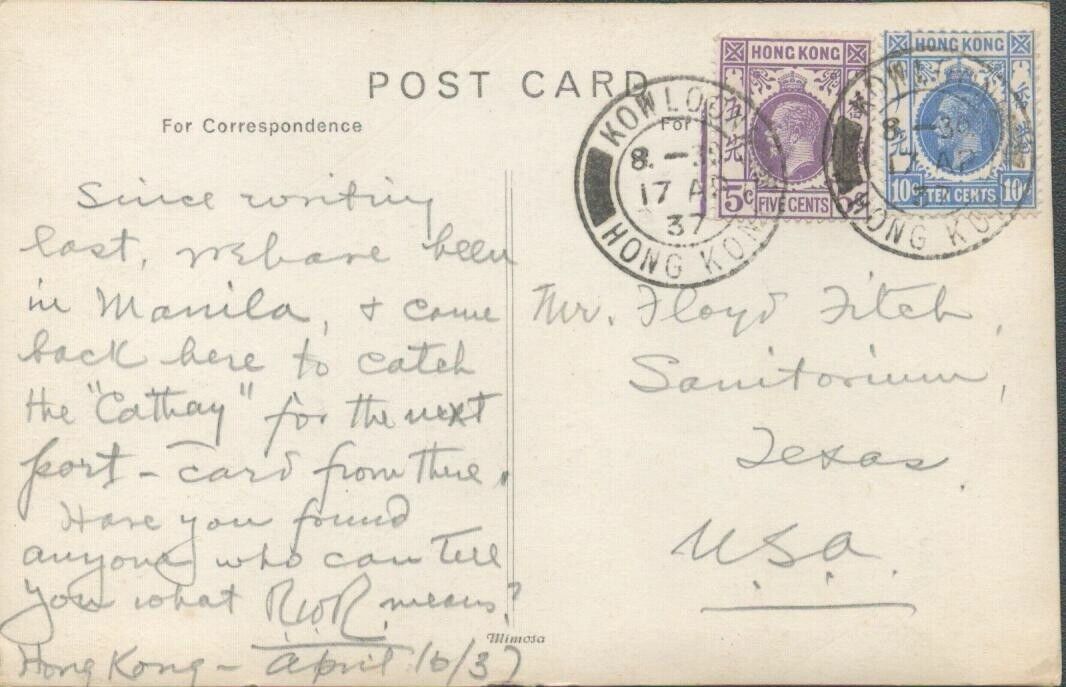 POST CARD
For Correspondence
For
HONG KONG
5c FIVE CENTS 5c
HONG KONG
10c TEN CENTS 10c
KOWLOON
8.—30
17 AP
37
HONG KONG
KOWLOON
8.—30
17 AP
37
HONG KONG
Since writing
last, we have been
in Manila, & came
back here to catch
the "Cathay" for the next
port – card from there.
Have you found
anyone who can tell
you what R.W.R. means?
Hong Kong – April 16/37
Mr. Floyd Fitch,
Sanitorium,
Texas
U.S.A.
Mimosa